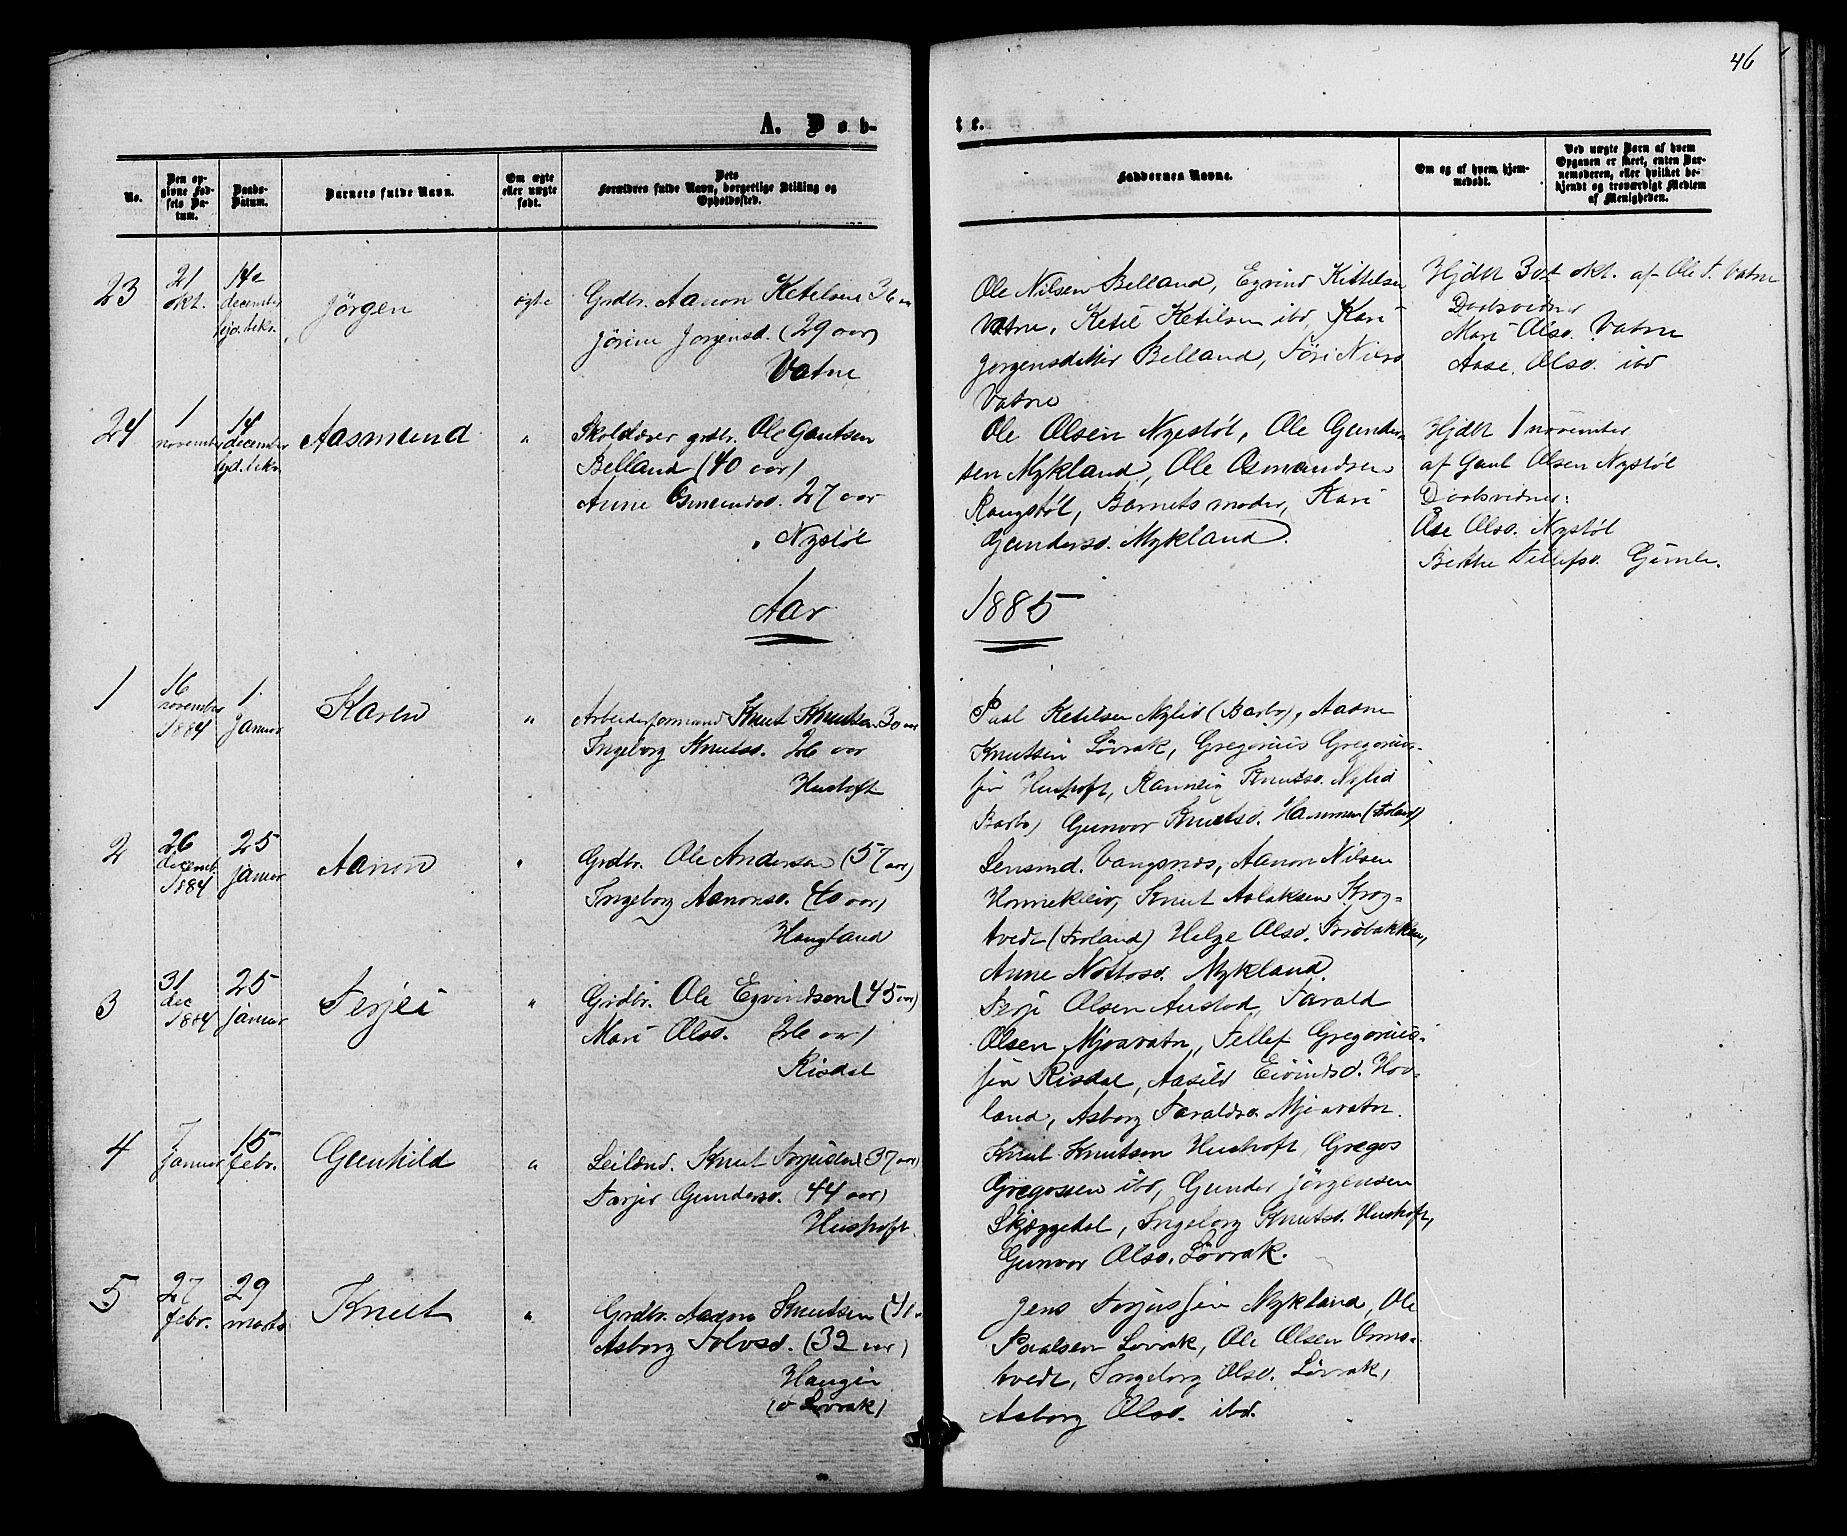 46
A. Døb-
te.
No.
Den op-
givne Fød-
sels Da-
tum.
Daabs-
Datum.
Barnets fulde Navn.
Om ægte
eller uægte
født.
Dets
Forældres fulde Navn, borgerlige Stilling og
Opholdssted.
Faddernes Navne.
Om og af hvem hjem-
medøbt.
Ved uægte Børn af hvem
Opgaven er skeet, enten Bar-
nemoderen, eller hvilket be-
kjendt og troværdigt Medlem
af Menigheden.
23
21
okt.
14de
december
Jörgen
ægte
Grdbr. Aanon Ketelsen 36
Jörine Jörgensd. (29 aar)
Vatne
Ole Nilsen Belland, Eyvind Kittelsen
Vatne, Ketil Ketilsen ibd, Kari
Jörgensdatter Belland,
Vatne
Hjdbt 30te okt. af Ole T. Vatne
Daabsvidner
Mari Olsd. Vatne
Aase Olsd. ibd
24
1
november
14
december
Aasmund
"
grdbr. Ole Gautsen
Belland (40 aar)
Anne 27 aar
Nystöl
Ole Olsen Nystöl, Ole Gunder-
sen Mykland, Ole Osmundsen
Rangstöl, Barnets moder, Kari
Gundersd. Mykland.
Hjdbt 1 november
af Gaut Olsen Nystöl
Daabsvidner:
Åse Olsd. Nystöl
Berthe Tellefsd. Gimle.
Aar
1885
1
16
november
1884
1.
Januar
Karen
"
Arbeidsformand Knut Knutsen 30 aar
Ingeborg Knutsd. 26 aar
Hushoft
Paal Ketilsen Nylid (Barbo), Aanne
Knutsen Lövrak, Gregorius Gregorius-
sen Hushoft, Knutsd. Nylid
Barbo) Gunvor Knutsd. Hammen (Froland)
2
26
decemb.
1884
25
januar
Aanon
"
Grdbr. Ole Andersen (57 aar)
Ingeborg Aanonsd. (40 aar)
Haugland
Lensmd. Vangsnes, Aanon Nilsen
Knut Aslaksen Krog-
tvedt (Froland) Helge Olsd.
Anne Mykland.
3
31
dec
1884
25
januar
Terjei
"
Grdbr. Ole Eyvindsen (45 aar)
Mari Olsd. 26 aar)
Risdal
Terje Olsen Austad, Tarald
Olsen Mjaavatn, Tellef Gregorius-
sen Risdal, Aasild Eivindsd. Hov-
land, Asborg Taraldsd. Mjaavatn.
4
7
Januar
15
febr.
Gunhild
"
Leilænd. Knut 37 aar)
Gundersd. (44 aar)
Hushoft.
Knut Knutsen Hushoft, Gregos
Gregossen ibd, Gunder Jörgensen
Skjæggedal, Ingeborg Knutsd. Hushoft,
Gunvor Olsd. Lövrak.
5
27
febr.
29
marts
Knut
"
Grdbr. Aanne Knutsen (41
Asborg Tolvsd. (32 aar)
Haugen
(o Lövrak)
Jens Terjussen Mykland, Ole
Paalsen Lövrak, Ole Olsen Orms-
tvedt, Ingeborg Olsd. Lövrak,
Asborg Olsd. ibd.